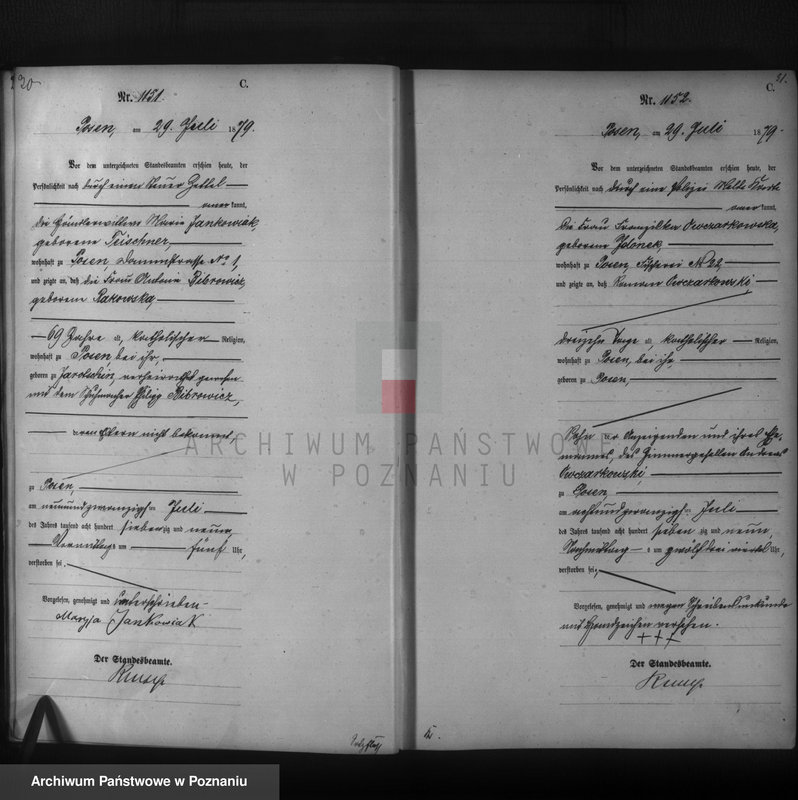 30
C.
Nr. 1151.
Posen, am 29. Juli 1879.
Vor dem unterzeichneten Standesbeamten erschien heute, der
Persönlichkeit nach durch einen Steuer Zettel
kannt,
die Händlerwittwe Marie Jankowiak,
geborene Teischner,
wohnhaft zu Posen, Dammstrasse No 1,
und zeigte an, daß die Frau Antonie Bibrowicz,
geborene Rakowska,
69 Jahre alt, katholischer Religion,
wohnhaft zu Posen bei ihr,
geboren zu Jarotschin, verheirathet gewesen
mit dem Schuhmacher Philipp Bibrowicz,
deren Eltern nicht bekannt,
zu Posen,
am neunundzwanzigsten Juli
des Jahres tausend acht hundert siebenzig und neun
Vormittags um fünf Uhr,
verstorben sei.
Vorgelesen, genehmigt und unterschrieben
Maryja Jankowiak
Der Standesbeamte.
51.
C.
Nr. 1152.
Posen, am 29. Juli 1879.
Vor dem unterzeichneten Standesbeamten erschien heute, der
Persönlichkeit nach durch eine Polizei Melde Karte
kannt,
die Frau Franziska Owczarkowska,
geborene Jelonek,
wohnhaft zu Posen, Fischerei No 22,
und zeigte an, daß Roman Owczarkowski
dreizehn Tage alt, katholischer Religion,
wohnhaft zu Posen, bei ihr,
geboren zu Posen,
Sohn der Anzeigenden und ihres Ehe-
mannes, des Zimmergesellen Andreas
Owczarkowski
zu Posen,
am achtundzwanzigsten Juli
des Jahres tausend acht hundert siebenzig und neun,
Nachmittags um zwölf drei viertel Uhr,
verstorben sei,
Vorgelesen, genehmigt und wegen Schreibensunkunde
mit Handzeichen versehen.
+++
Der Standesbeamte.
ARCHIWUM PAŃSTWOWE
W POZNANIU
Archiwum Państwowe w Poznaniu